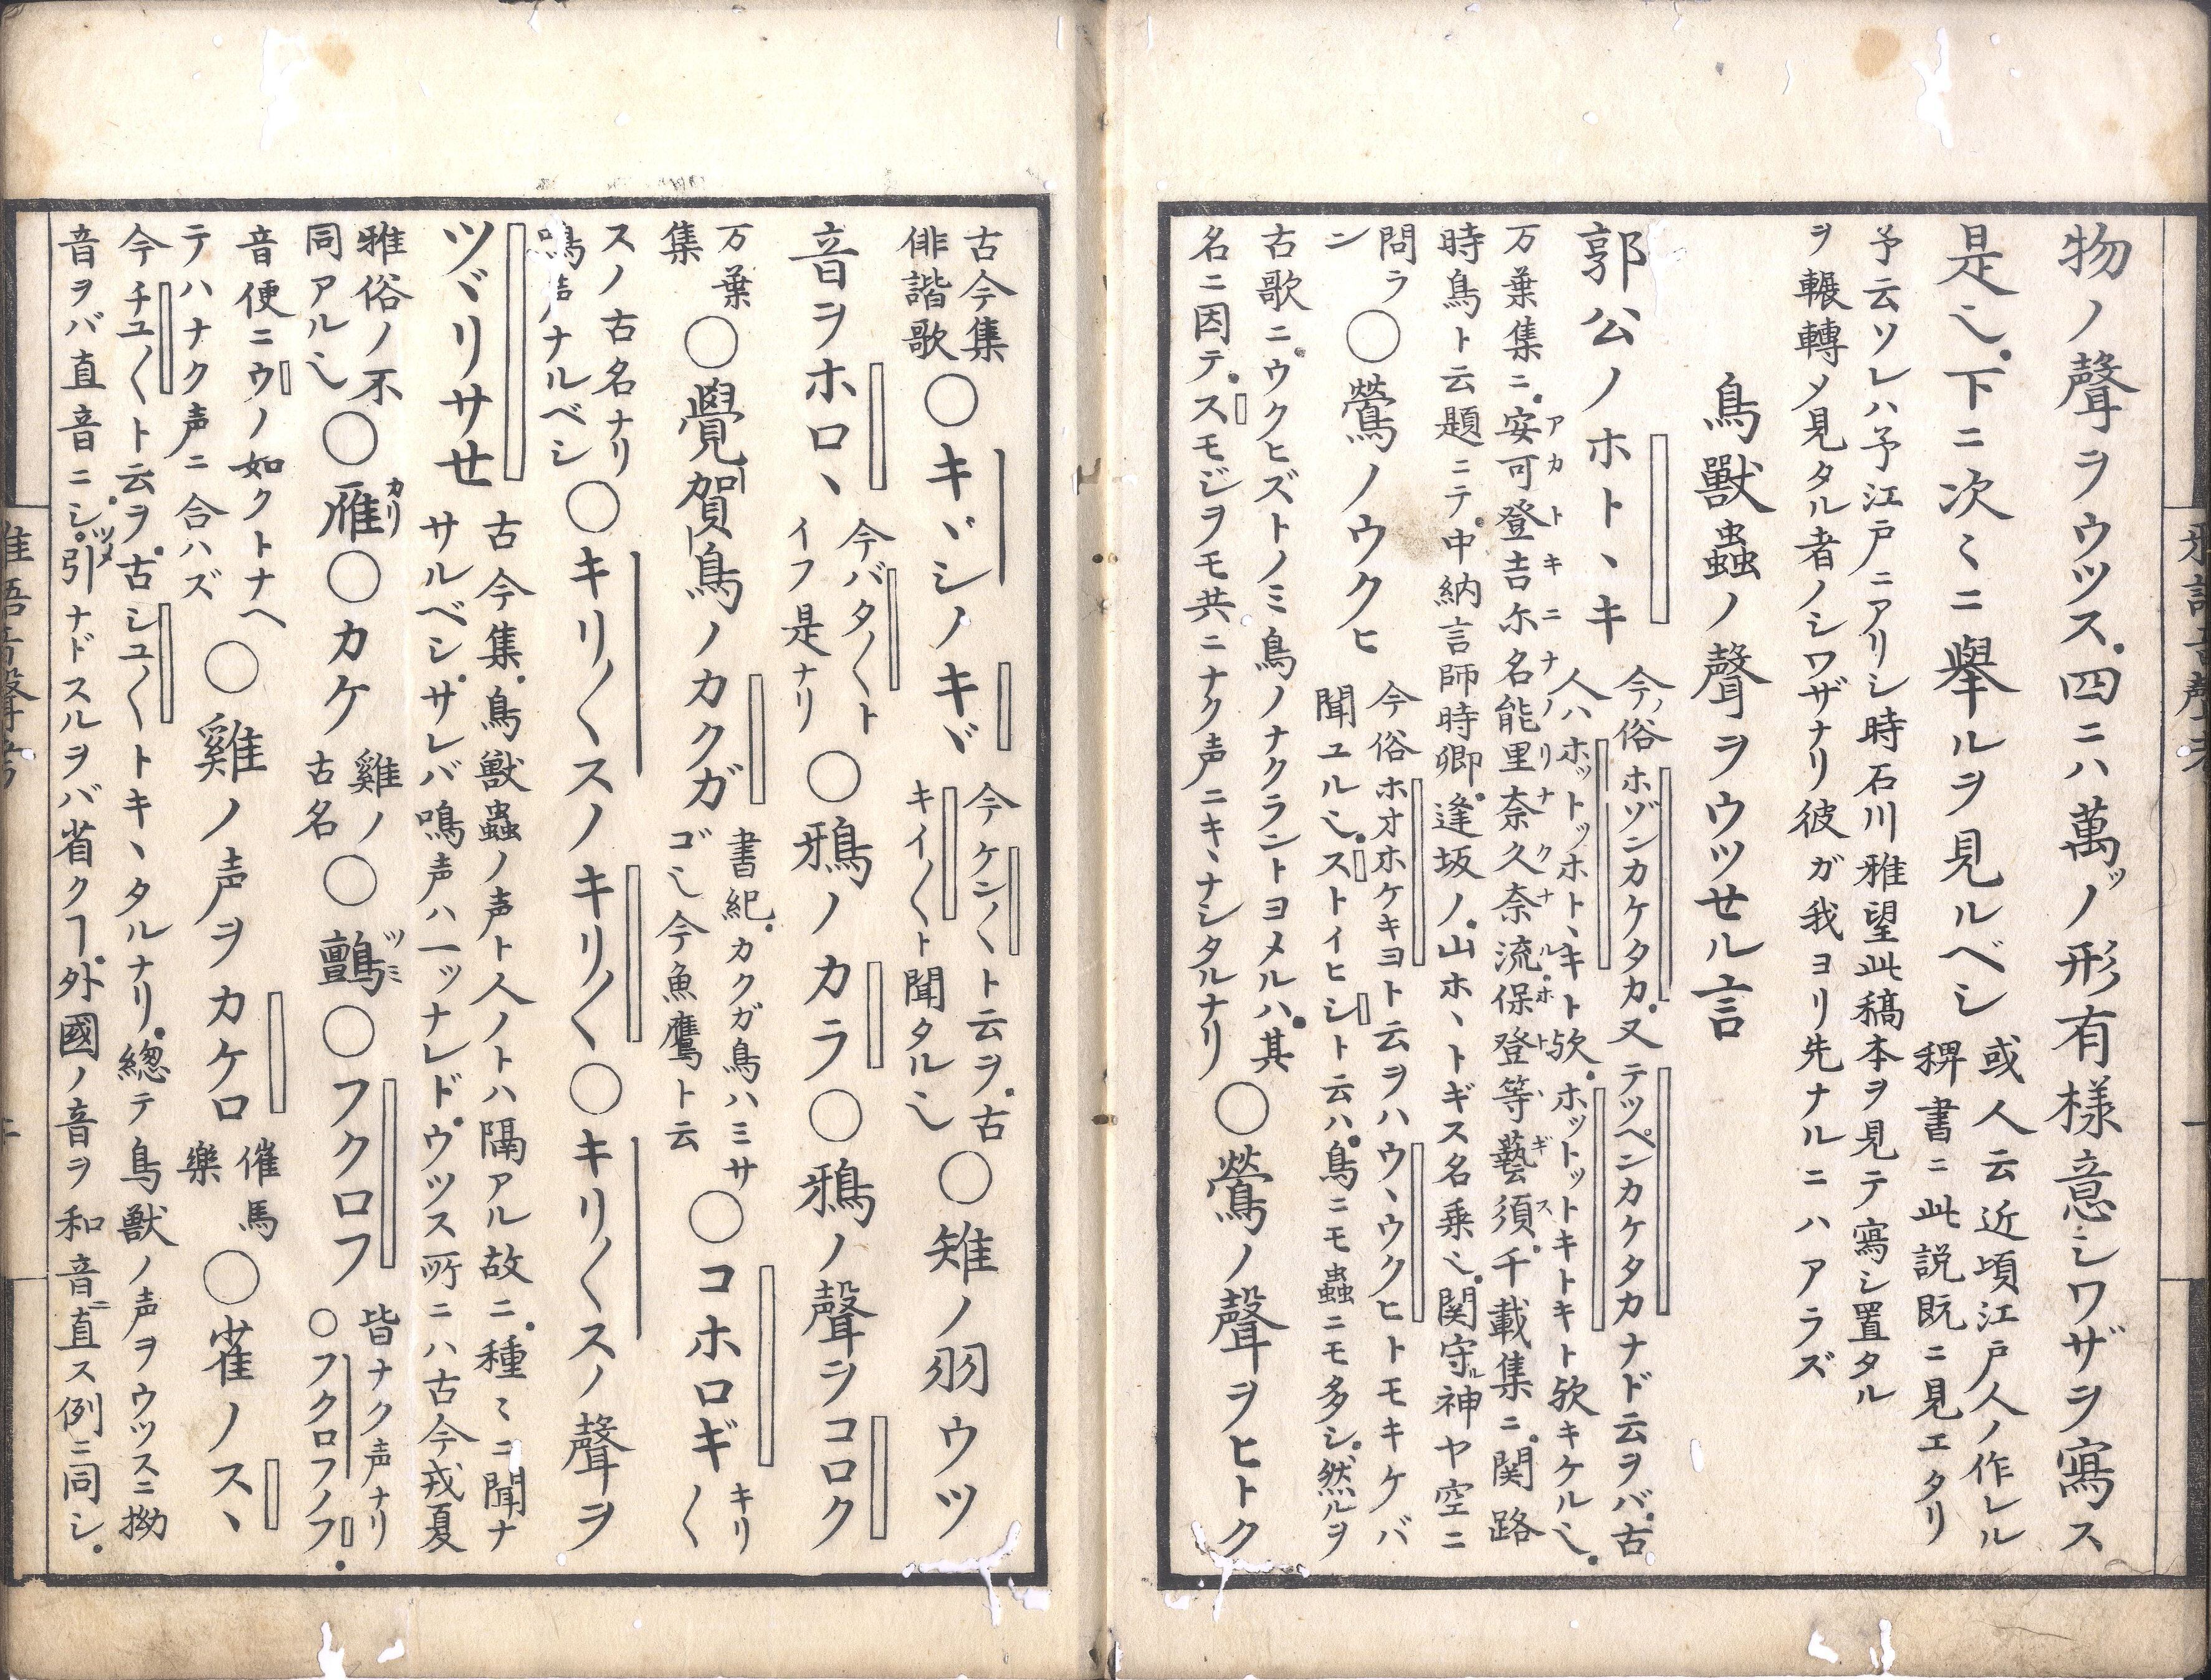 物ノ聲ヲウツス。四ニハ萬ッノ形有様意シワザヲ寫ス
是也。下ニ次々ニ舉ルヲ見ルベシ
或人云近頃江戸人ノ作レル
稗書ニ此説既ニ見エタリ
予云ソレハ予江戸ニアリシ時石川雅望此稿本ヲ見テ寫シ置タル
ヲ輾轉メ見タル者ノシワザナリ彼ガ我ヨリ先ナルニハアラズ
鳥獸蟲ノ聲ヲウツセル言
郭公ノホトヽキ
今ノ俗ホゾンカケタカ。又テッペンカケタカナド云ヲバ。古
人ハホットッホトヽキト欤。ホットットキトキト欤キケル也。
万葉集ニ。安可登吉尓名能里奈久奈流保登等藝須。千載集ニ。関路
アカトキニナノリナクナルホトヽギス
時鳥ト云題ニテ。中納言師時卿。逢坂ノ。山ホヽトギス名乗也。関守ル神ヤ空ニ
問ラ
ン
〇鶯ノウクヒ
今俗ホオホケキヨト云ヲハウヽウクヒトモキケバ
聞ユル也。ストイヒシト云ハ。鳥ニモ蟲ニモ多シ。然ルヲ
古歌ニ。ウクヒズトノミ鳥ノナクラントヨメルハ。其
名ニ因テ。スモジヲモ共ニナク声ニキヽナシタルナリ
〇鶯ノ聲ヲヒトク
古今集
俳諧歌
〇キヾシノキヾ
今ケン〳〵ト云ヲ。古
キイ〳〵ト聞タル也
〇雉ノ羽ウツ
音ヲホロヽ
今バタ〳〵ト
イフ是ナリ
〇鴉ノカラ〇鴉ノ聲ヲコロク
万葉
集
〇覺賀鳥ノカクガ
書紀。カクガ鳥ハミサ
ゴ也今魚鷹ト云
〇コホロギ
キリ
〳〵
スノ古名ナリ
鳴声ナルベシ
〇キリ〳〵スノキリ〳〵〇キリ〳〵スノ聲ヲ
ツヾリサセ
古今集。鳥獸蟲ノ声ト人ノトハ隔アル故ニ。種々ニ聞ナ
サルベシ。サレバ鳴声ハ一ッナレド。ウツス所ニハ古今戎夏
雅俗ノ不
同アル也
〇雁〇カケ
カリ
雞ノ
古名
〇鸇〇フクロフ
ツミ
皆ナク声ナリ
〇フクロフノフ。
音便ニウノ如クトナヘ
テハナク声ニ合ハズ
〇雞ノ声ヲカケロ
催馬
樂
〇雀ノスヽ
今チユ〳〵ト云ヲ。古シユ〳〵トキヽタルナリ。總テ鳥獸ノ声ヲウツスニ拗
音ヲバ直音ニシ。引ツメナドスルヲバ省クヿ。外國ノ音ヲ和音ニ直ス例ニ同シ。